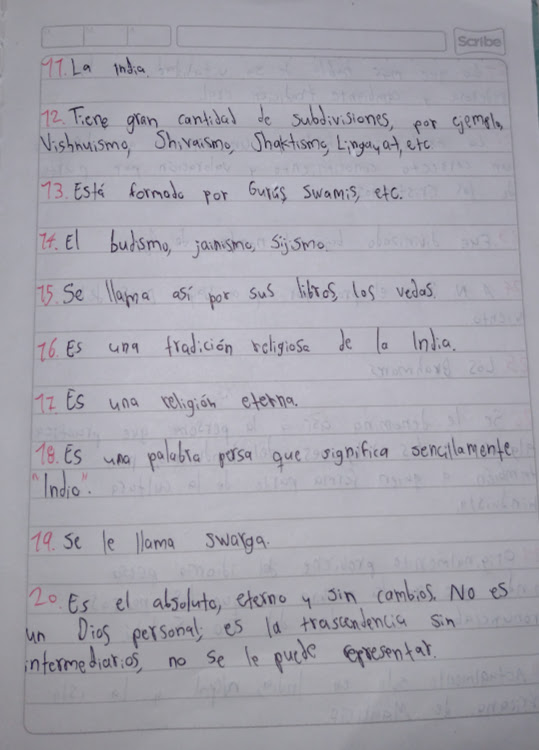 Scribe
11. La india.
12. Tiene gran cantidad de subdivisiones, por ejemplo,
Vishnuismo, Shivaismo, Shaktismo, Lingayat, etc
13. Está formado por Gurús, Swamis, etc.
14. El budismo, jainismo, Sijismo.
15. Se llama así por sus libros, los vedas.
16. Es una tradición religiosa de la India.
17. Es una religión eterna.
18. Es una palabra persa que significa sencillamente
"Indio".
19. Se le llama swarga.
20. Es el absoluto, eterno y sin cambios. No es
un Dios personal, es la trascendencia sin
intermediarios, no se le puede representar.